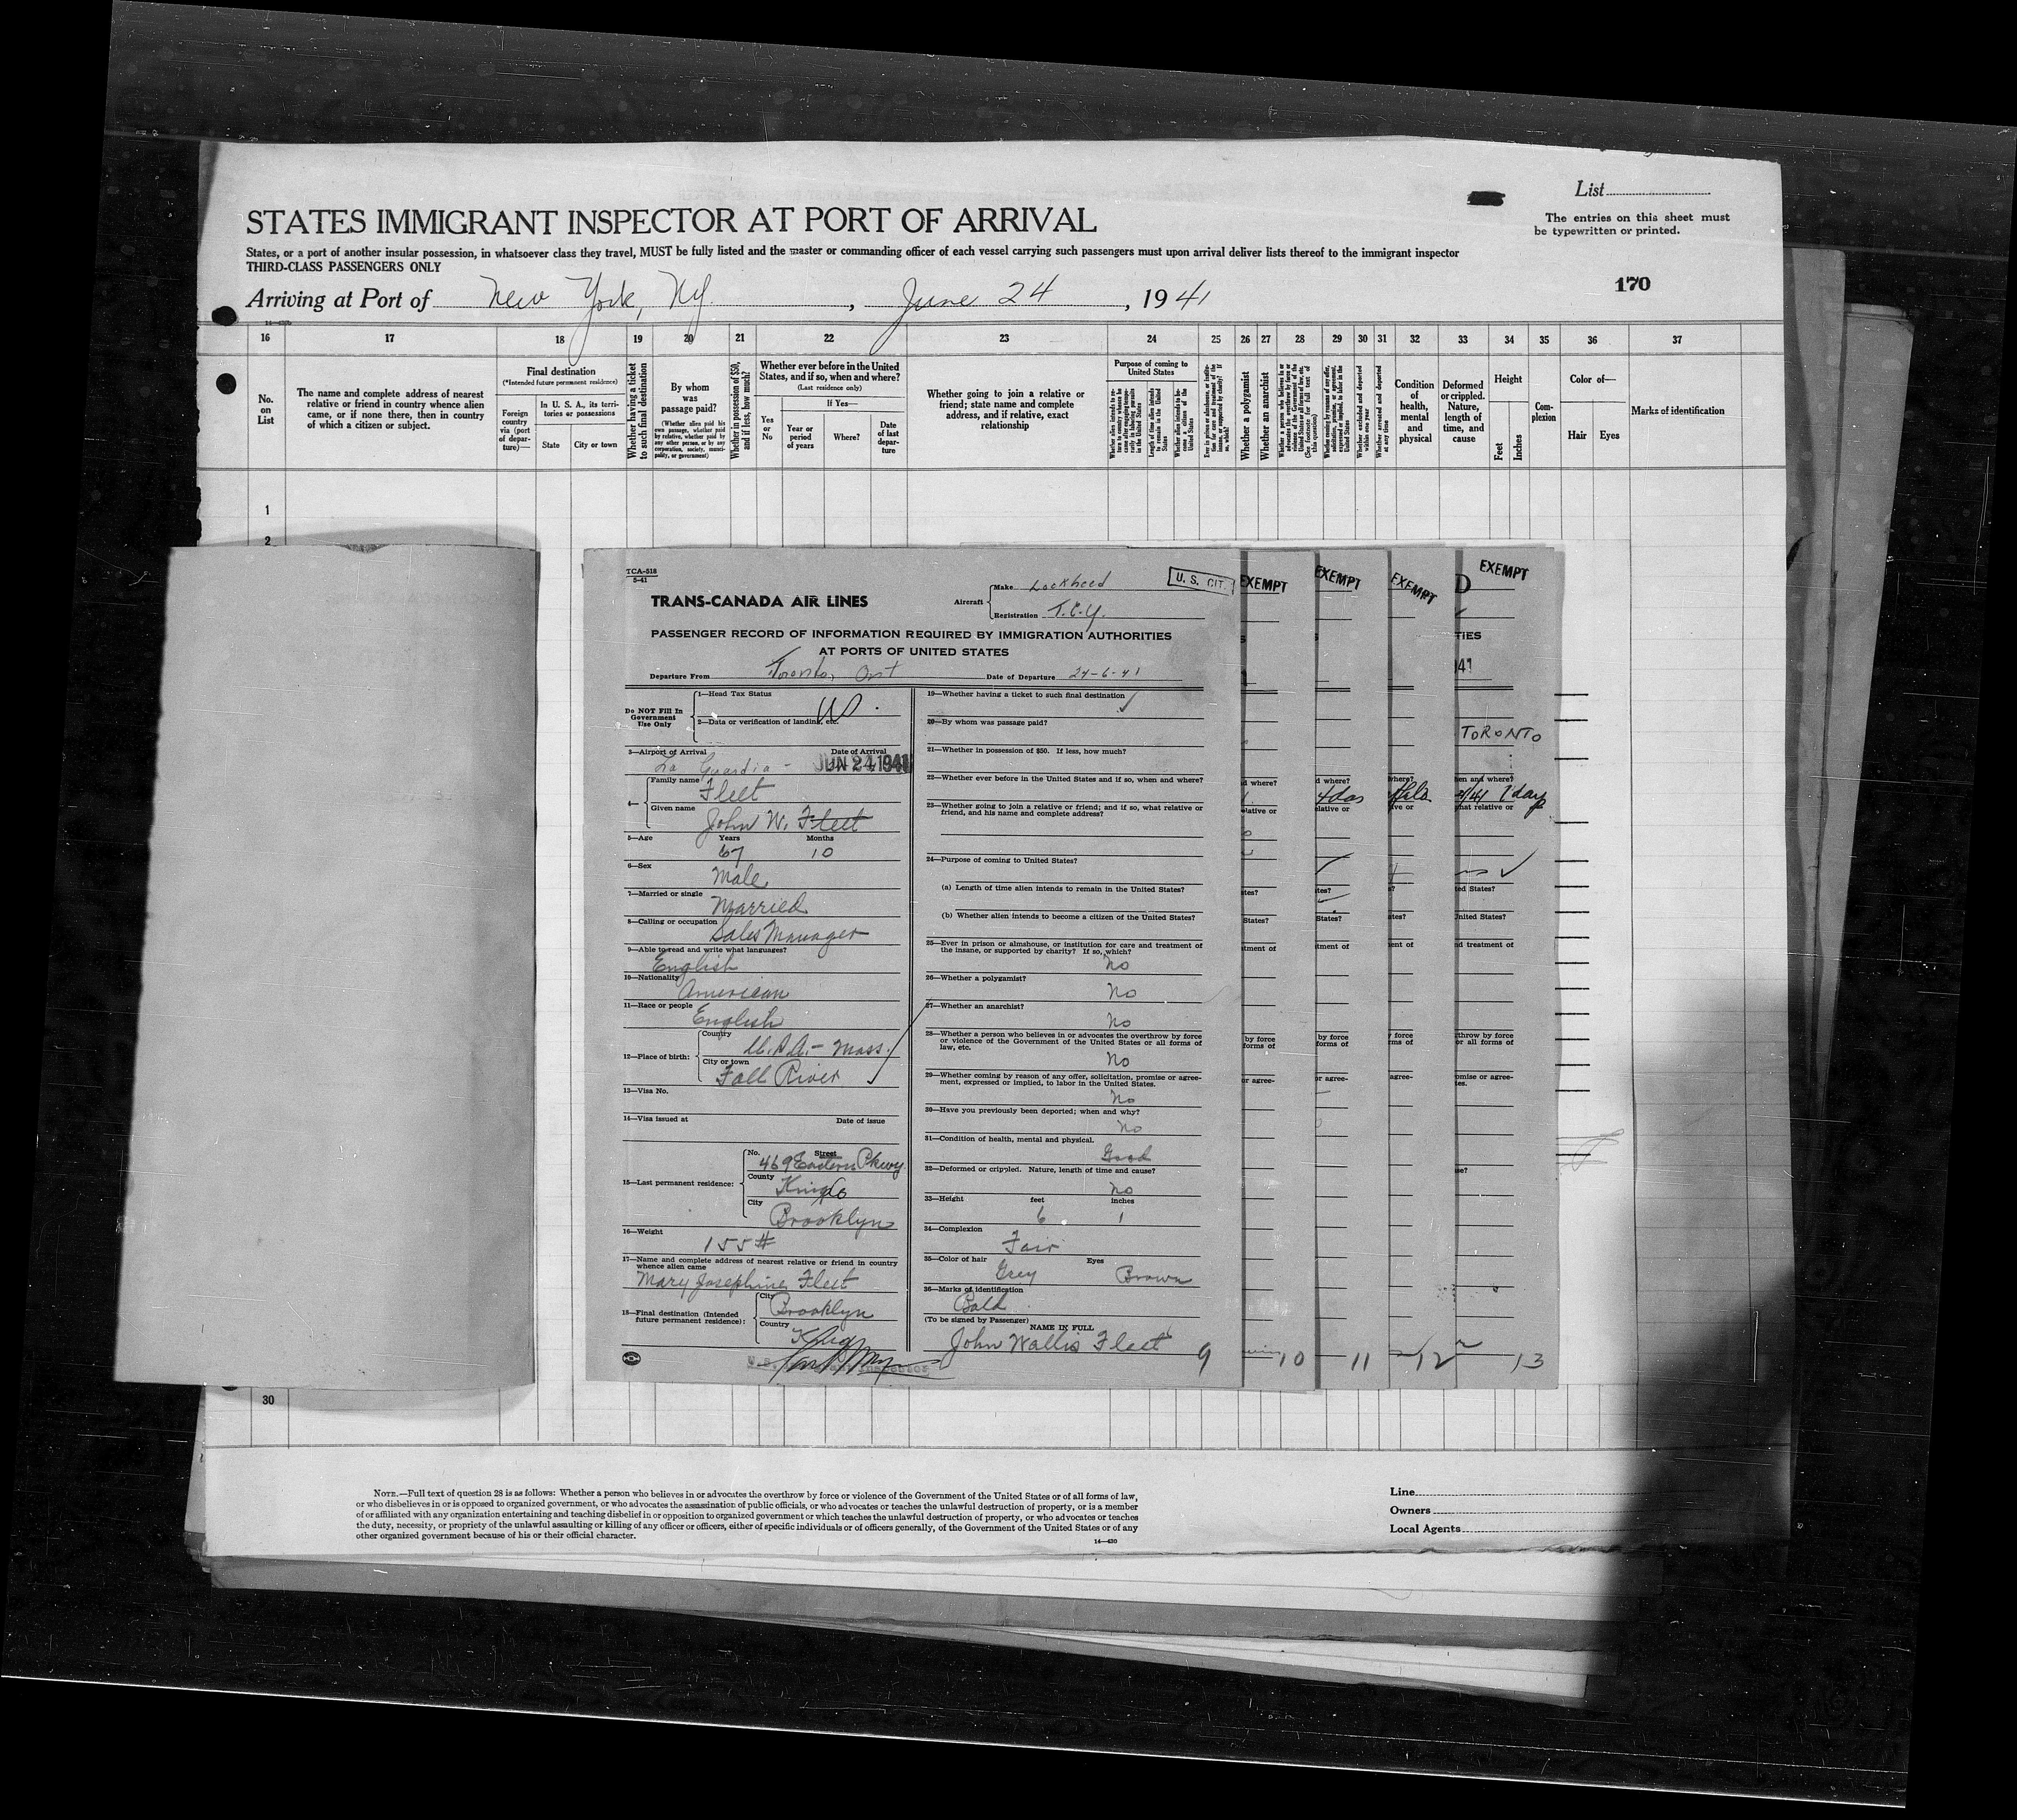 List
The entries on this sheet must
be typewritten or printed.
STATES IMMIGRANT INSPECTOR AT PORT OF ARRIVAL
States, or a port of another insular possession, in whatsoever class they travel, MUST be fully listed and the master or commanding officer of each vessel carrying such passengers must upon arrival deliver lists thereof to the immigrant inspector
THIRD-CLASS PASSENGERS ONLY
170
Arriving at Port of New York, Ny. , June 24 , 1941
16 17 18 19 20 21 22 23 24 25 26 27 28 29 30 31 32 33 34 35 36 37
No. on List
The name and complete address of nearest
relative or friend in country whence alien
came, or if none there, then in country
of which a citizen or subject.
Final destination
(*Intended future permanent residence)
Foreign country via (port of departure)—
In U. S. A., its territories or possessions
State
City or town
Whether having a ticket to such final destination
By whom was passage paid?
(Whether alien paid his own passage, whether paid by relative, whether paid by any other person, or by any corporation, society, municipality, or government)
Whether in possession of $50, and if less, how much?
Whether ever before in the United
States, and if so, when and where?
(Last residence only)
Yes or No
If Yes—
Year or period of years
Where?
Date of last departure
Whether going to join a relative or
friend; state name and complete
address, and if relative, exact
relationship
Purpose of coming to United States
Length of time alien intends to remain in the United States
Whether alien intends to become a citizen of the United States
Whether a polygamist
Whether an anarchist
Condition of health, mental and physical
Deformed or crippled. Nature, length of time, and cause
Height
Feet
Inches
Complexion
Color of—
Hair
Eyes
Marks of identification
1
2
TCA-518
5-41
TRANS-CANADA AIR LINES
Aircraft
Make Lockheed
Registration T.C.Y.
U. S. CIT.
PASSENGER RECORD OF INFORMATION REQUIRED BY IMMIGRATION AUTHORITIES
AT PORTS OF UNITED STATES
Departure From Toronto, Ont
Date of Departure 24-6-41
Do NOT Fill In
Government
Use Only
1—Head Tax Status
2—Data or verification of landing, etc.
3—Airport of Arrival
Date of Arrival
La Guardia - JUN 24 1941
4—
Family name
Fleet
Given name
John W. Fleet
5—Age
Years
Months
67 10
6—Sex
Male
7—Married or single
Married
8—Calling or occupation
Sales Manager
9—Able to read and write what languages?
English
10—Nationality
American
11—Race or people
English
12—Place of birth:
Country
U.S.A. - Mass.
City or town
Fall River
13—Visa No.
14—Visa issued at
Date of issue
15—Last permanent residence:
No.
Street
469 Eastern Pkwy
County
Kings
City
Brooklyn
16—Weight
155 #
17—Name and complete address of nearest relative or friend in country
whence alien came
Mary Josephine Fleet
18—Final destination (Intended
future permanent residence):
City
Brooklyn
Country
19—Whether having a ticket to such final destination
20—By whom was passage paid?
21—Whether in possession of $50. If less, how much?
22—Whether ever before in the United States and if so, when and where?
23—Whether going to join a relative or friend; and if so, what relative or
friend, and his name and complete address?
24—Purpose of coming to United States?
(a) Length of time alien intends to remain in the United States?
(b) Whether alien intends to become a citizen of the United States?
25—Ever in prison or almshouse, or institution for care and treatment of
the insane, or supported by charity? If so, which?
No
26—Whether a polygamist?
No
27—Whether an anarchist?
No
28—Whether a person who believes in or advocates the overthrow by force
or violence of the Government of the United States or all forms of
law, etc.
No
29—Whether coming by reason of any offer, solicitation, promise or agree-
ment, expressed or implied, to labor in the United States.
No
30—Have you previously been deported; when and why?
No
31—Condition of health, mental and physical.
Good
32—Deformed or crippled. Nature, length of time and cause?
No
33—Height
feet
inches
6 1
34—Complexion
Fair
35—Color of hair
Eyes
Grey Brown
36—Marks of identification
Bald
(To be signed by Passenger)
NAME IN FULL
John Wallis Fleet
9
EXEMPT
EXEMPT
EXEMPT
EXEMPT
TORONTO
10
11
12
13
30
NOTE.—Full text of question 28 is as follows: Whether a person who believes in or advocates the overthrow by force or violence of the Government of the United States or of all forms of law,
or who disbelieves in or is opposed to organized government, or who advocates the assassination of public officials, or who advocates or teaches the unlawful destruction of property, or is a member
of or affiliated with any organization entertaining and teaching disbelief in or opposition to organized government or which teaches the unlawful destruction of property, or who advocates or teaches
the duty, necessity, or propriety of the unlawful assaulting or killing of any officer or officers, either of specific individuals or of officers generally, of the Government of the United States or of any
other organized government because of his or their official character.
14—430
Line
Owners
Local Agents